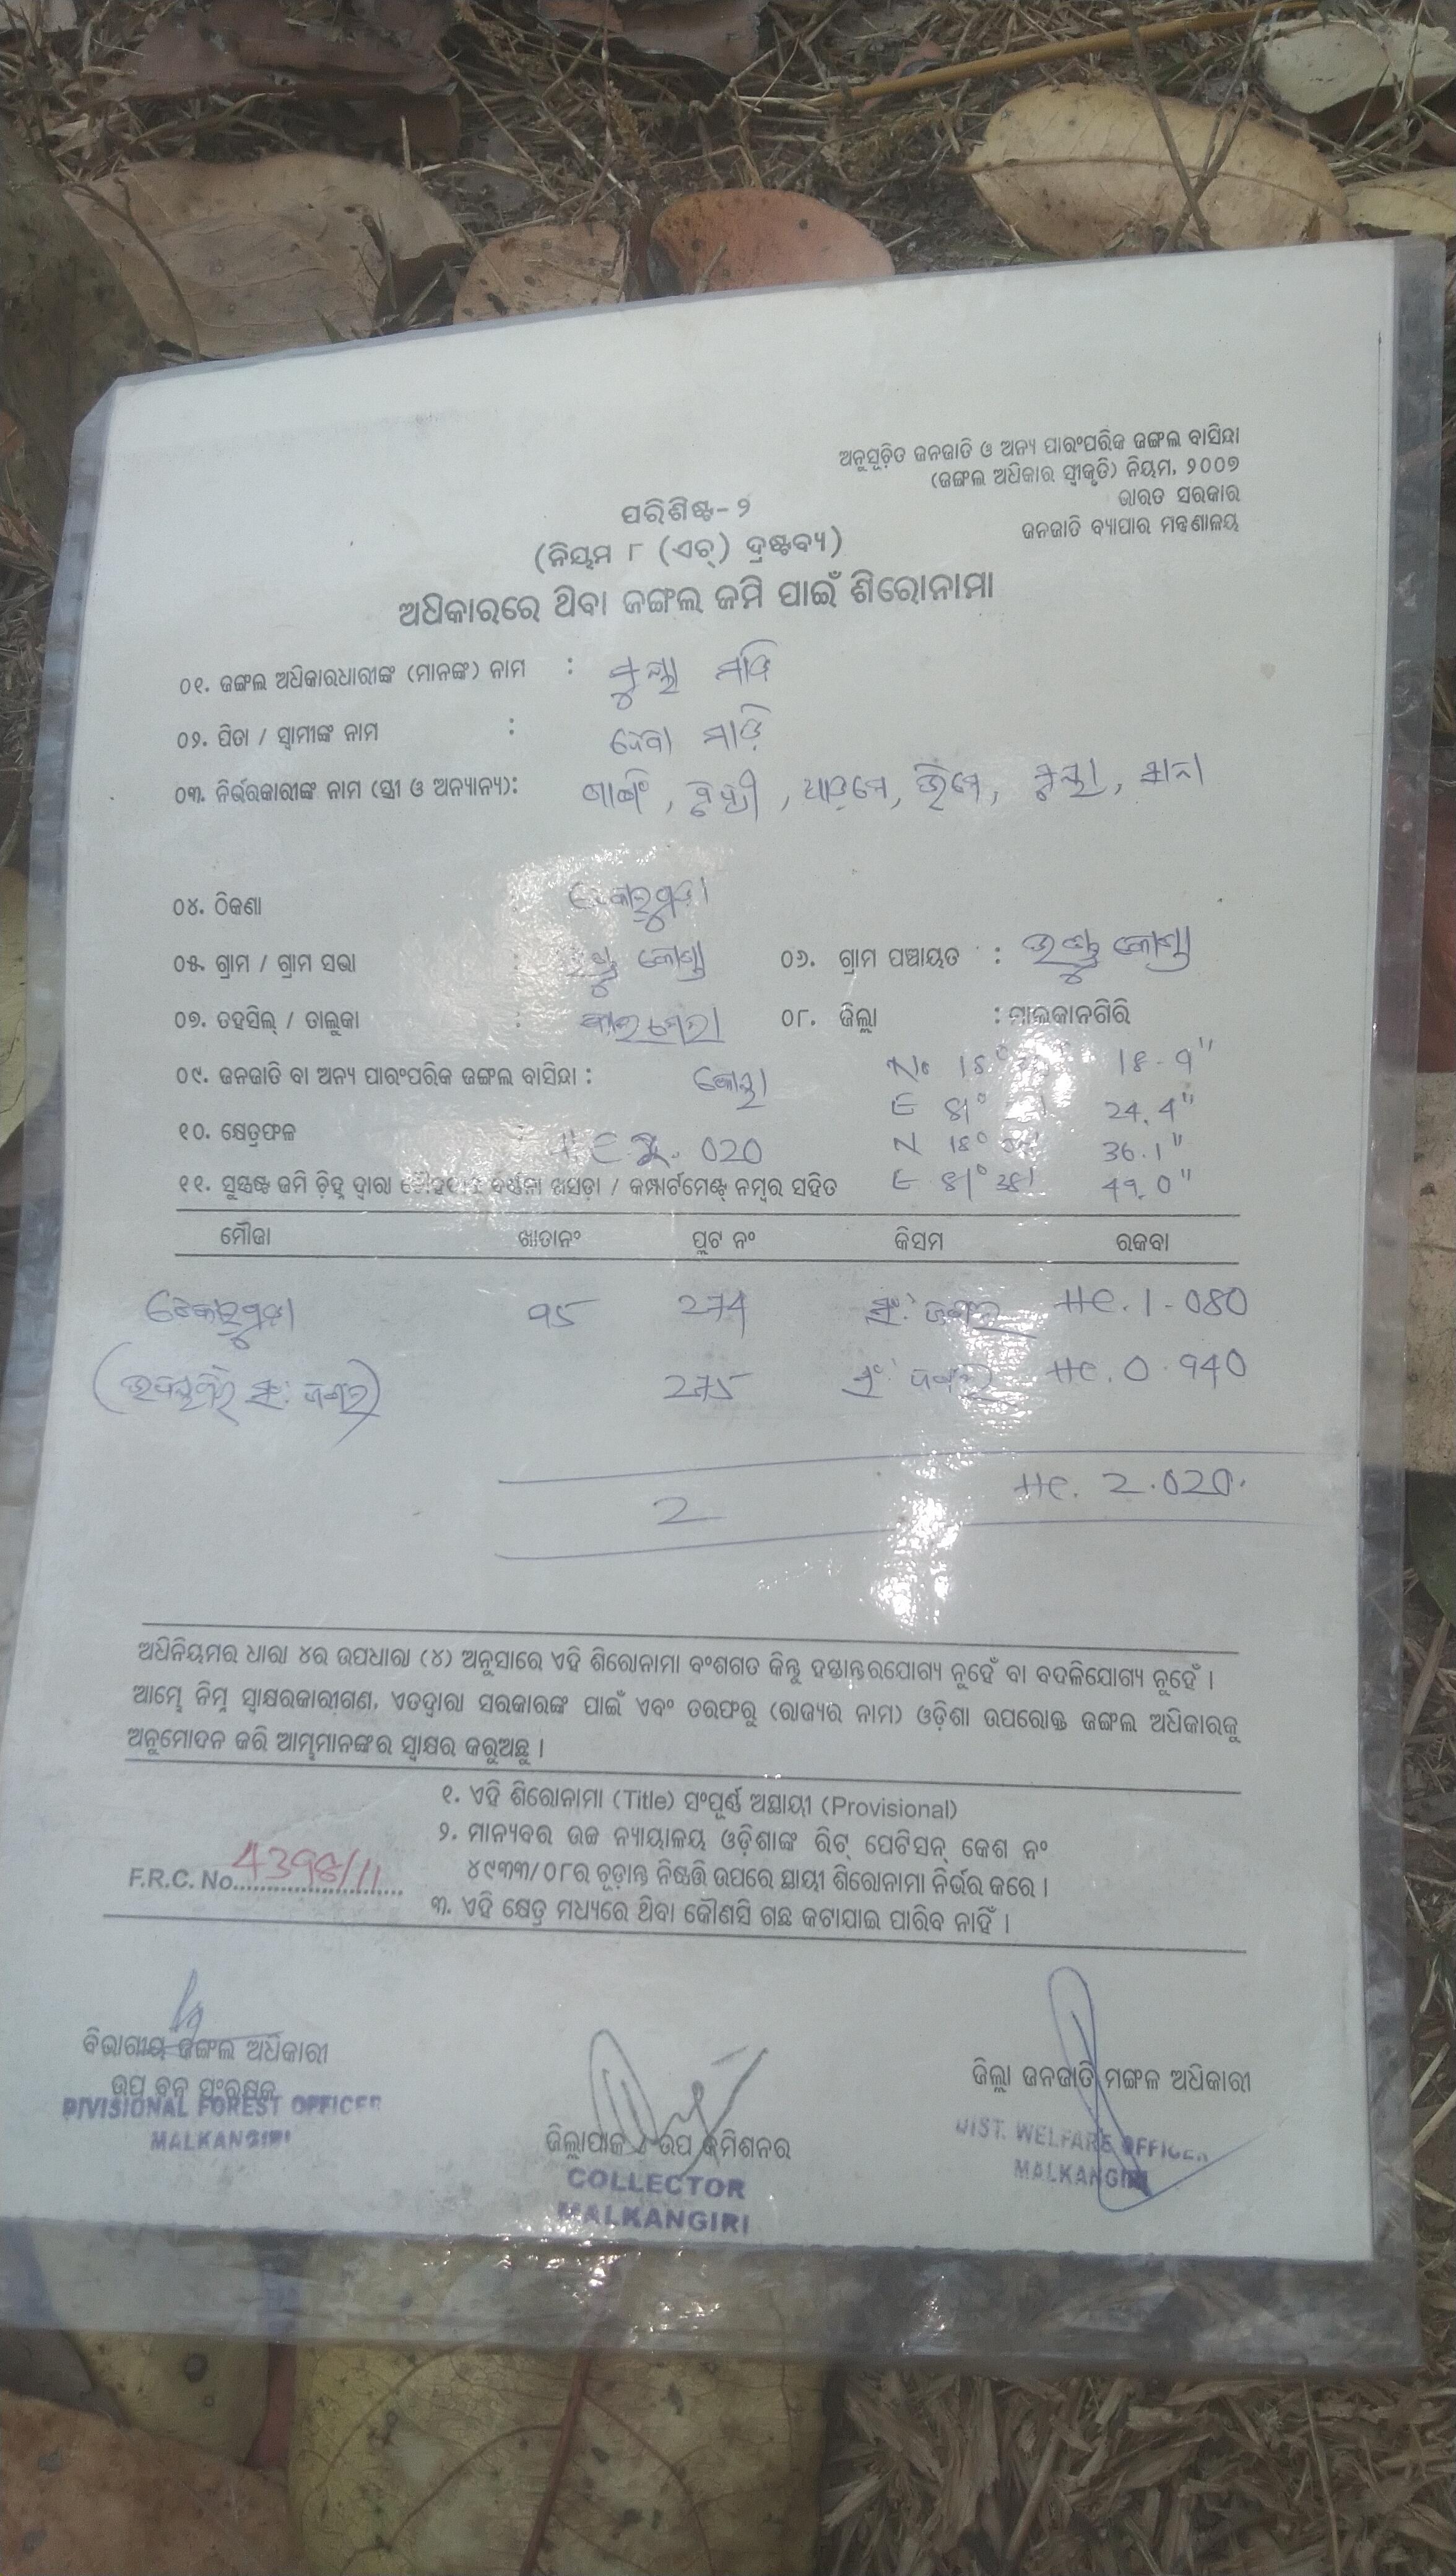 ଅନୁସୂଚିତ ଜନଜାତି ଓ ଅନ୍ୟ ପାରଂପରିକ ଜଙ୍ଗଲ ବାସିନ୍ଦା
(ଜଙ୍ଗଲ ଅଧିକାର ସ୍ୱୀକୃତି) ନିୟମ, ୨୦୦୭
ଭାରତ ସରକାର
ଜନଜାତି ବ୍ୟାପାର ମନ୍ତ୍ରଣାଳୟ
ପରିଶିଷ୍ଟ-୨
(ନିୟମ ୮ (ଏଚ୍) ଦ୍ରଷ୍ଟବ୍ୟ)
ଅଧିକାରରେ ଥିବା ଜଙ୍ଗଲ ଜମି ପାଇଁ ଶିରୋନାମା
୦୧. ଜଙ୍ଗଲ ଅଧିକାରଧାରୀଙ୍କ (ମାନଙ୍କ) ନାମ : ମାଡି
୦୨. ପିତା / ସ୍ୱାମୀଙ୍କ ନାମ : ଦେବା ମାଡ଼ି
୦୩. ନିର୍ଭରକାରୀଙ୍କ ନାମ (ସ୍ତ୍ରୀ ଓ ଅନ୍ୟାନ୍ୟ):
୦୪. ଠିକଣା :
୦୫. ଗ୍ରାମ / ଗ୍ରାମ ସଭା : କୋଣ୍ଡା ୦୬. ଗ୍ରାମ ପଞ୍ଚାୟତ : କୋଣ୍ଡା
୦୭. ତହସିଲ୍ / ତାଲୁକା : କାଲିମେଳା ୦୮. ଜିଲ୍ଲା : ମାଲକାନଗିରି
୦୯. ଜନଜାତି ବା ଅନ୍ୟ ପାରଂପରିକ ଜଙ୍ଗଲ ବାସିନ୍ଦା : କୋୟା N 18° 18.9"
E 81° 24.4"
୧୦. କ୍ଷେତ୍ରଫଳ 2.020 N 18° 36.1"
୧୧. ସୁସ୍ପଷ୍ଟ ଜମି ଚିହ୍ନ ଦ୍ୱାରା ଚୌହଦୀର ବର୍ଣ୍ଣନା ଖସଡ଼ା / କମ୍ପାର୍ଟମେଣ୍ଟ ନମ୍ବର ସହିତ E 81° 38' 49.0"
ମୌଜା ଖାତାନଂ ପ୍ଲଟ ନଂ କିସମ ରକବା
95 274 ସଂ: ଜଙ୍ଗଲ He. 1.080
ସଂ: ଜଙ୍ଗଲ) 275 ସଂ: ଜଙ୍ଗଲ He. 0.940
2 He. 2.020
ଅଧିନିୟମର ଧାରା ୪ର ଉପଧାରା (୪) ଅନୁସାରେ ଏହି ଶିରୋନାମା ବଂଶଗତ କିନ୍ତୁ ହସ୍ତାନ୍ତରଯୋଗ୍ୟ ନୁହେଁ ବା ବଦଳିଯୋଗ୍ୟ ନୁହେଁ ।
ଆମ୍ଭେ ନିମ୍ନ ସ୍ୱାକ୍ଷରକାରୀଗଣ, ଏତଦ୍ୱାରା ସରକାରଙ୍କ ପାଇଁ ଏବଂ ତରଫରୁ (ରାଜ୍ୟର ନାମ) ଓଡ଼ିଶା ଉପରୋକ୍ତ ଜଙ୍ଗଲ ଅଧିକାରକୁ
ଅନୁମୋଦନ କରି ଆମ୍ଭମାନଙ୍କର ସ୍ୱାକ୍ଷର କରୁଅଛୁ ।
୧. ଏହି ଶିରୋନାମା (Title) ସଂପୂର୍ଣ୍ଣ ଅସ୍ଥାୟୀ (Provisional)
୨. ମାନ୍ୟବର ଉଚ୍ଚ ନ୍ୟାୟାଳୟ ଓଡ଼ିଶାଙ୍କ ରିଟ୍ ପେଟିସନ୍ କେଶ ନଂ
୪୯୩୩/୦୮ର ଚୂଡ଼ାନ୍ତ ନିଷ୍ପତ୍ତି ଉପରେ ସ୍ଥାୟୀ ଶିରୋନାମା ନିର୍ଭର କରେ ।
F.R.C. No.
୩. ଏହି କ୍ଷେତ୍ର ମଧ୍ୟରେ ଥିବା କୌଣସି ଗଛ କଟାଯାଇ ପାରିବ ନାହିଁ ।
ବିଭାଗୀୟ ଜଙ୍ଗଲ ଅଧିକାରୀ
ଉପ ବନ ସଂରକ୍ଷକ
DIVISIONAL FOREST OFFICER
MALKANGIRI
ଜିଲ୍ଲାପାଳ / ଉପ କମିଶନର
COLLECTOR
MALKANGIRI
ଜିଲ୍ଲା ଜନଜାତି ମଙ୍ଗଳ ଅଧିକାରୀ
DIST. WELFARE OFFICER
MALKANGIRI